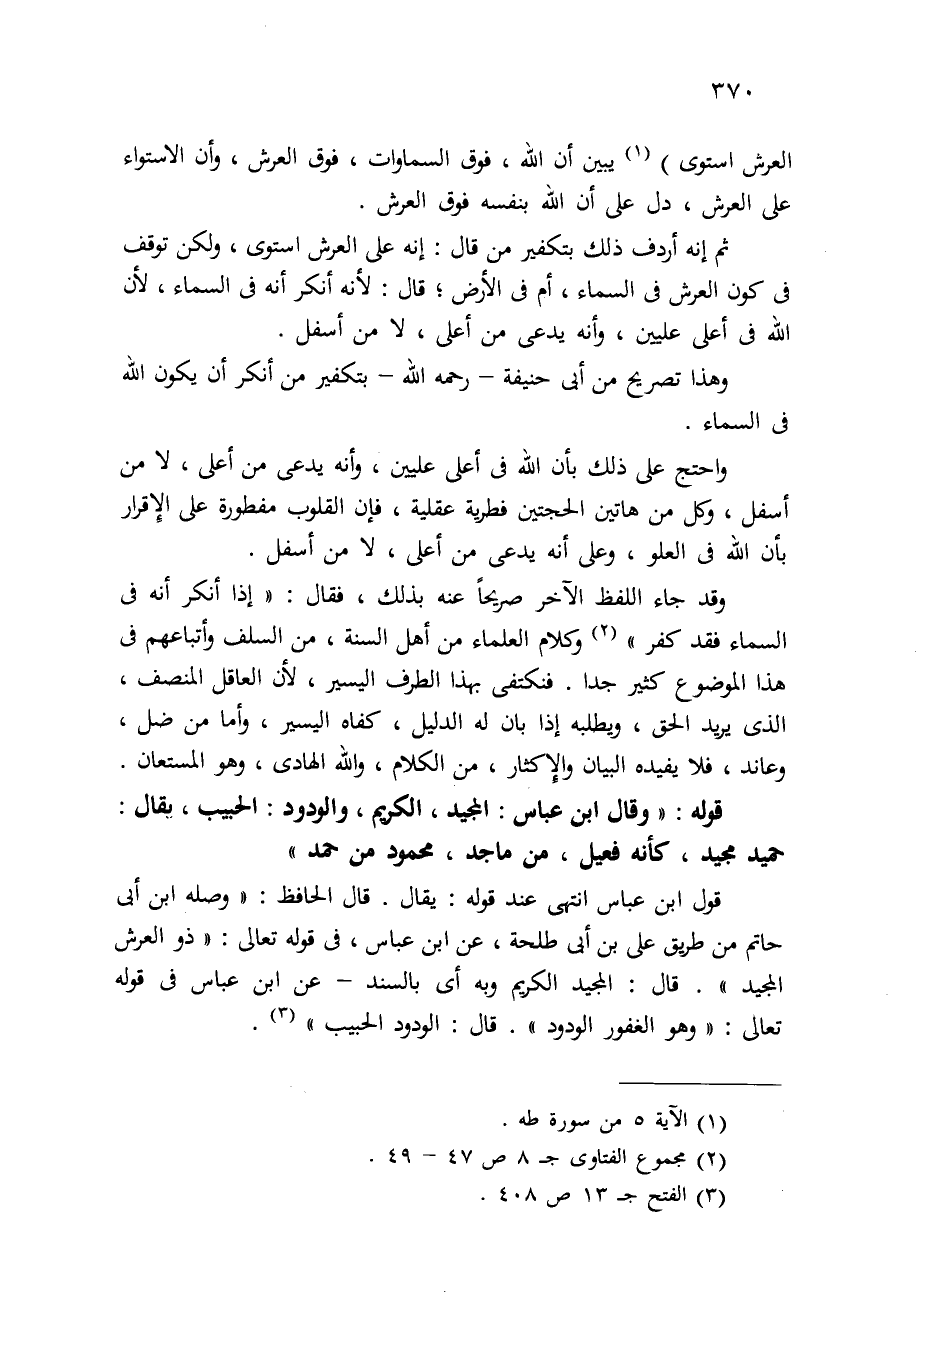 ٣٧٠
العرش استوى ) (١) يبين أن الله ، فوق السماوات ، فوق العرش ، وأن الاستواء
على العرش ، دل على أن الله بنفسه فوق العرش .
ثم إنه أردف ذلك بتكفير من قال : إنه على العرش استوى ، ولكن توقف
فى كون العرش فى السماء ، أم فى الأرض ؛ قال : لأنه أنكر أنه فى السماء ، لأن
الله فى أعلى عليين ، وأنه يدعى من أعلى ، لا من أسفل .
وهذا تصريح من أبى حنيفة – رحمه الله – بتكفير من أنكر أن يكون الله
فى السماء .
واحتج على ذلك بأن الله فى أعلى عليين ، وأنه يدعى من أعلى ، لا من
أسفل ، وكل من هاتين الحجتين فطرية عقلية ، فإن القلوب مفطورة على الإقرار
بأن الله فى العلو ، وعلى أنه يدعى من أعلى ، لا من أسفل .
وقد جاء اللفظ الآخر صريحاً عنه بذلك ، فقال : « إذا أنكر أنه فى
السماء فقد كفر » (٢) وكلام العلماء من أهل السنة ، من السلف وأتباعهم فى
هذا الموضوع كثير جدا . فنكتفى بهذا الطرف اليسير ، لأن العاقل المنصف ،
الذى يريد الحق ، ويطلبه إذا بان له الدليل ، كفاه اليسير ، وأما من ضل ،
وعاند ، فلا يفيده البيان والإكثار ، من الكلام ، والله الهادى ، وهو المستعان .
قوله : « وقال ابن عباس : المجيد ، الكريم ، والودود : الحبيب ، يقال :
حميد مجيد ، كأنه فعيل ، من ماجد ، محمود من حمد »
قول ابن عباس انتهى عند قوله : يقال . قال الحافظ : « وصله ابن أبى
حاتم من طريق على بن أبى طلحة ، عن ابن عباس ، فى قوله تعالى : « ذو العرش
المجيد » . قال : المجيد الكريم وبه أى بالسند – عن ابن عباس فى قوله
تعالى : « وهو الغفور الودود » . قال : الودود الحبيب » (٣) .
(١) الآية ٥ من سورة طه .
(٢) مجموع الفتاوى جـ ٨ ص ٤٧ – ٤٩ .
(٣) الفتح جـ ١٣ ص ٤٠٨ .